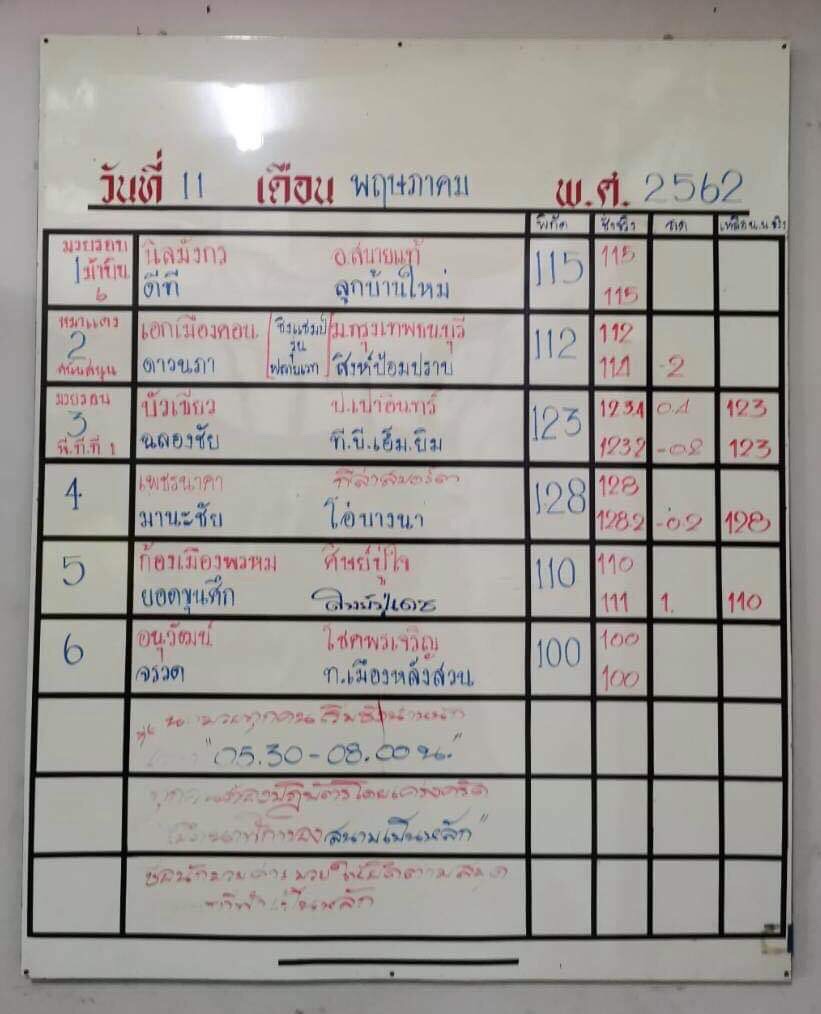 วันที่ 11 เดือน พฤษภาคม พ.ศ. 2562
พิกัด ชั่งจริง ขาด เหลือน.น.จริง
มวยรอบ 1 ม้าบิน 6
นิลมังกร อ.สนายแท้ 115 115
ดีที ลูกบ้านใหม่ 115
หมาแดง 2 สนับสนุน
เอกเมืองคอน ชิงแชมป์รุ่น ม.กรุงเทพธนบุรี 112 112
ดาวนภา สิงห์ป้อมปราบ 114 -2
มวยรอบ 3 พี.ที.ที 1
บัวเขียว ป.เปาอินทร์ 123 123.1 0.1 123
ฉลองชัย ที.บี.เอ็ม.ยิม 123.2 -0.2 123
4 เพชรนาคา 128 128
มานะชัย โอ๋บางนา 128.2 -0.2 128
5 ก้องเมืองพรหม ศิษย์ปู่ใจ 110 110
ยอดขุนศึก 111 1. 110
6 อนุวัฒน์ โชคพรเจริญ 100 100
จรวด ท.เมืองหลังสวน 100
มวยทุกคนเริ่มชั่งน้ำหนัก
"05.30-08.00 น."
ต้องปฏิบัติโดยเคร่งครัด
ของสนามเป็นหลัก"
ชื่อนักมวย
เป็นหลัก